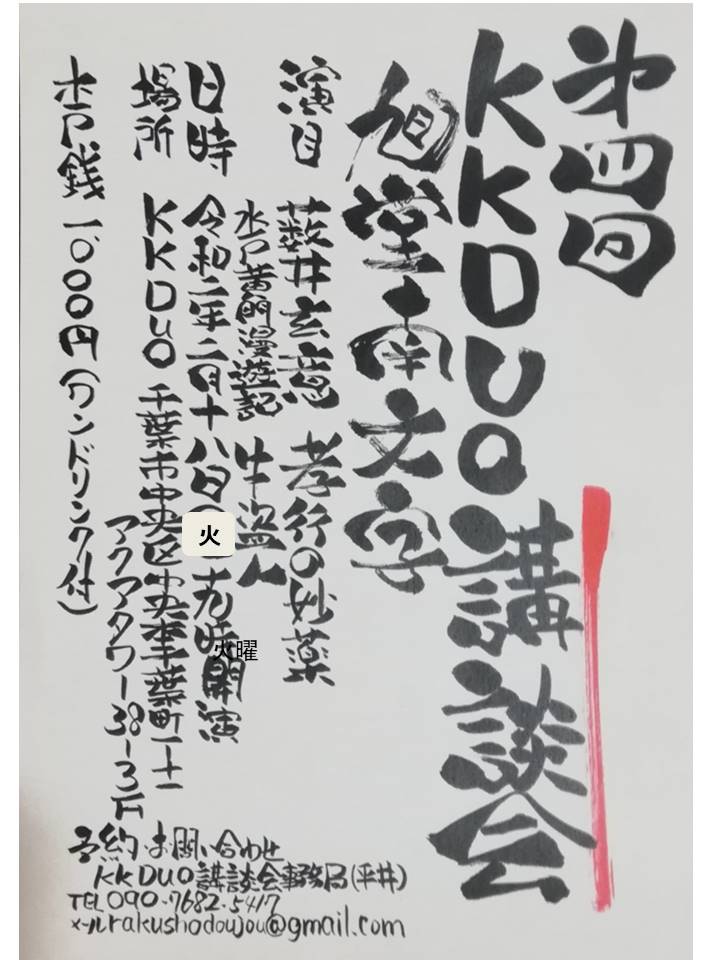 第四回
KKDUO講談会
旭堂南文字
演目 藪井玄意 孝行の妙薬
水戸黄門漫遊記 牛盗人
日時 令和二年二月十八日 火 時開演
火曜
場所 KKDUO 千葉市中央区中央本千葉町
アクアタワー
木戸銭 一、〇〇〇円(ワンドリンク付)
予約・お問い合わせ
KKDUO講談会事務局(平井)
TEL 090-7682-5417
メールrakushodoujou@gmail.com